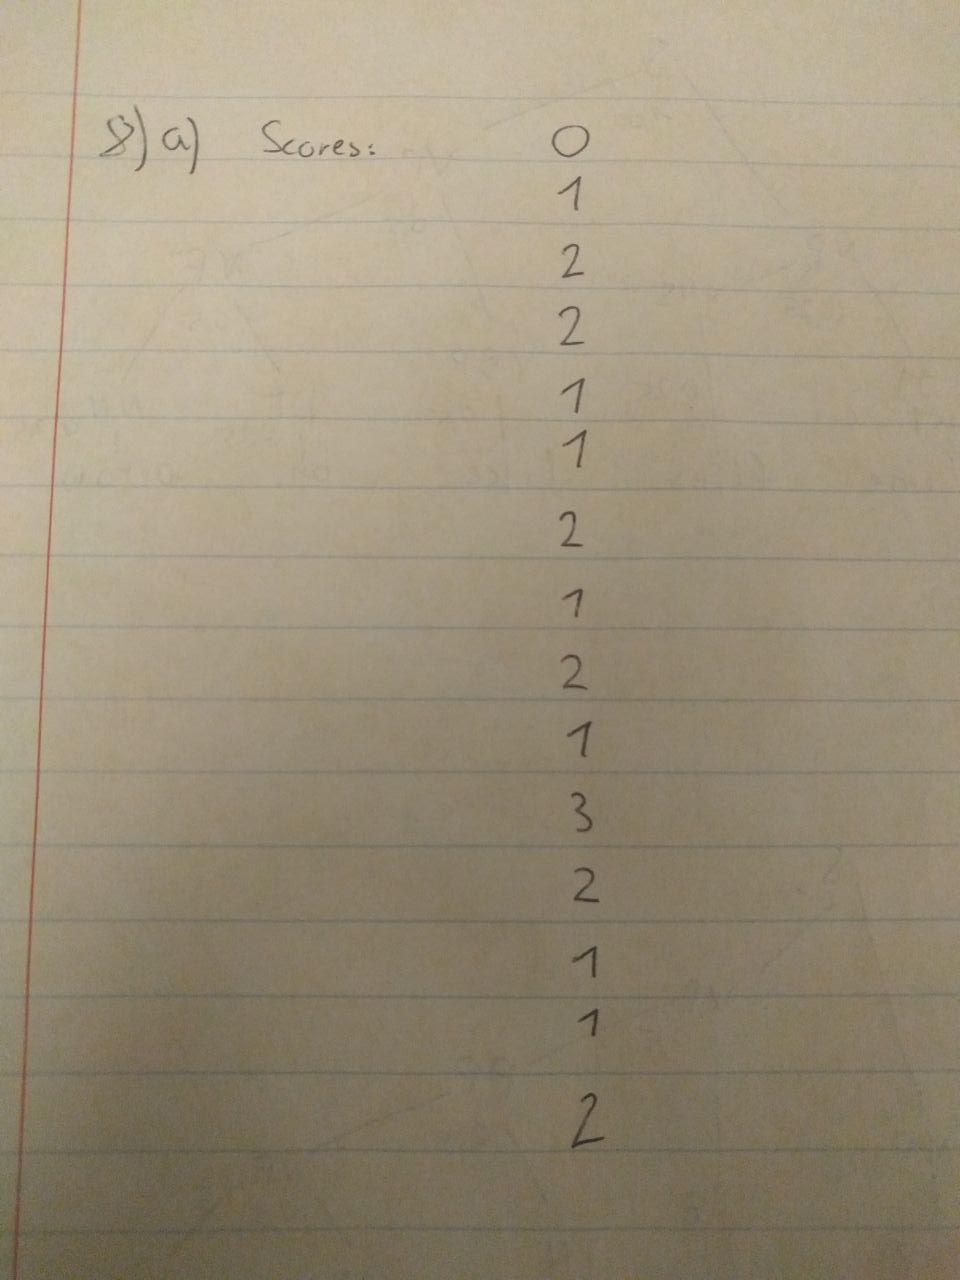 8) a) Scores: 0
1
2
2
1
1
2
1
2
1
3
2
1
1
2